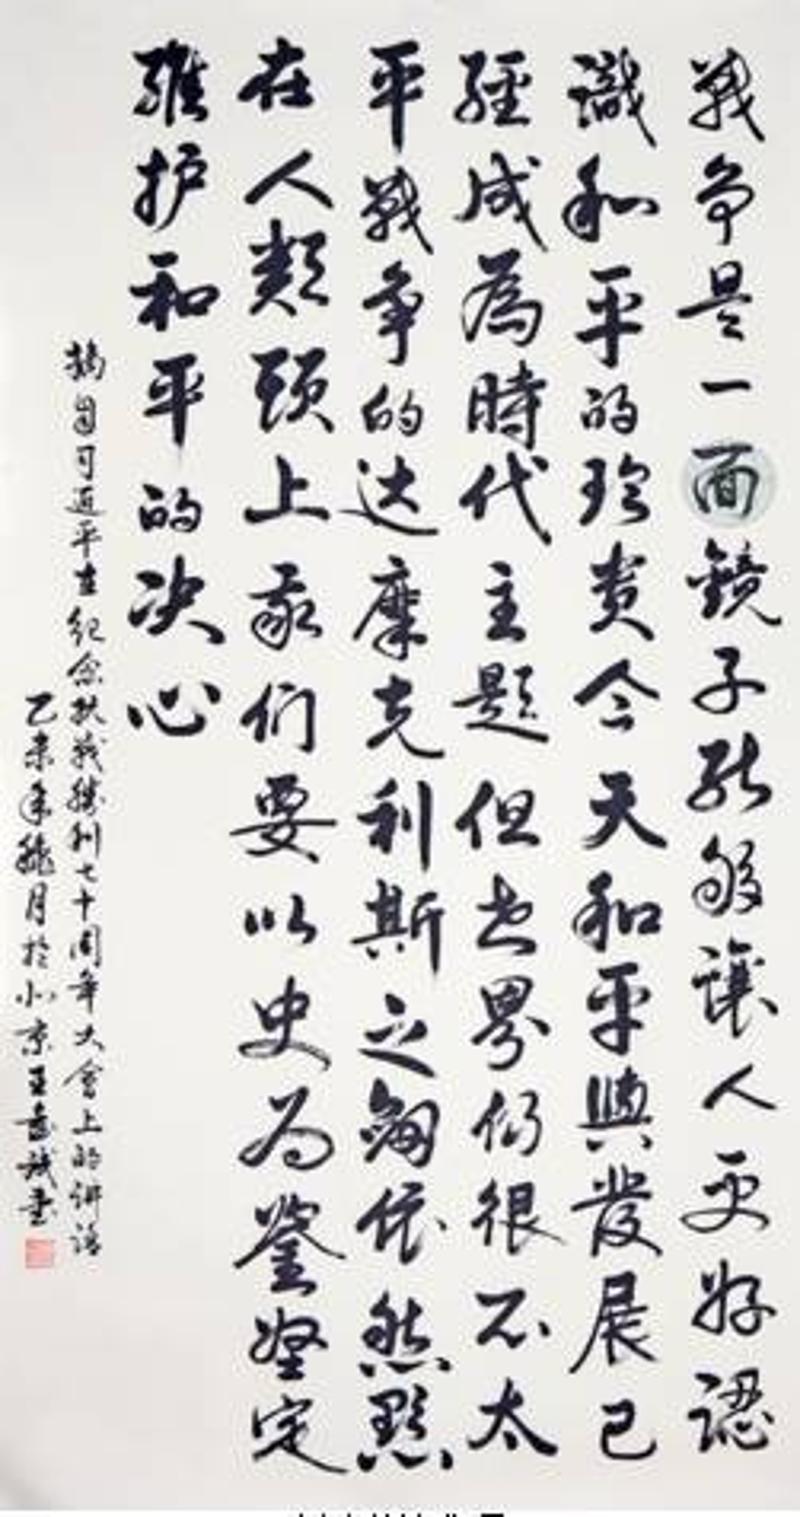 戰争是一面鏡子能够讓人更好認
識和平的珍贵今天和平與發展已
經成為時代主題但世界仍很不太
平戰争的达摩克利斯之劍依然懸
在人類頭上我们要以史为鉴堅定
維护和平的决心
摘自习近平在纪念抗战勝利七十周年大會上的讲话
乙未年 月於北京王 书